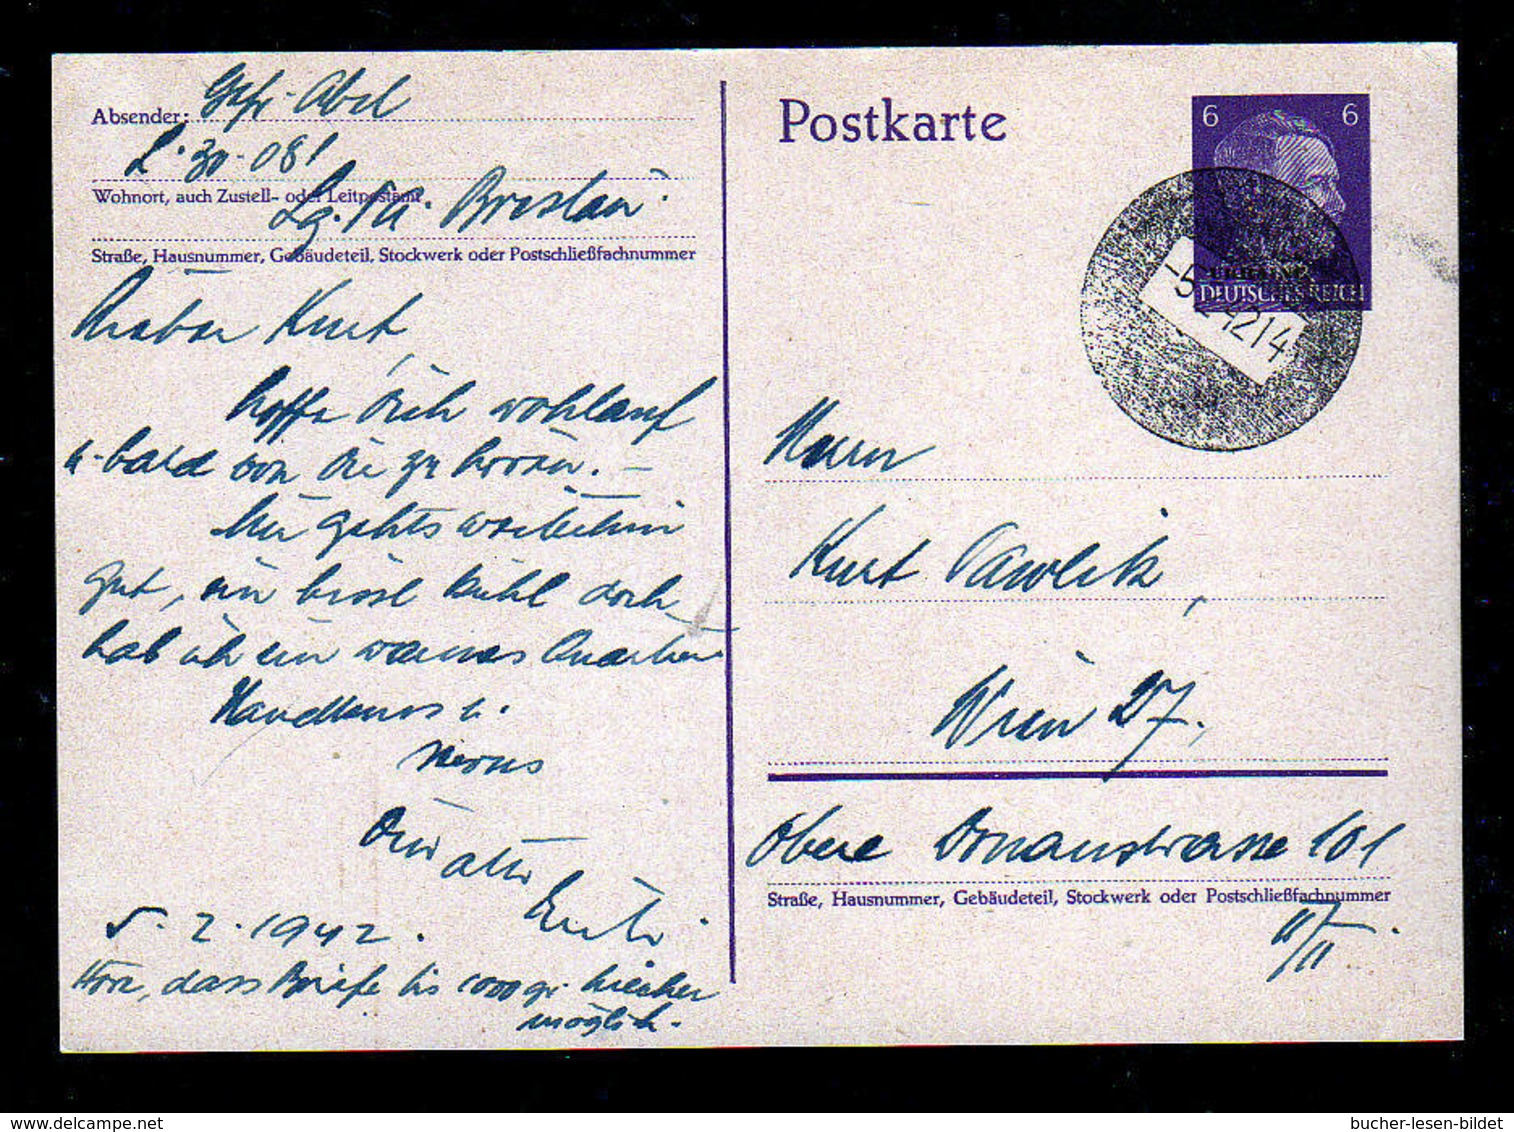 Absender: Gefr. Abel
L. 30.081
Wohnort, auch Zustell- oder Leitpostamt
Lg. PA. Breslau
Straße, Hausnummer, Gebäudeteil, Stockwerk oder Postschließfachnummer
Lieber Kurt,
hoffe dich wohlauf
u. bald von dir zu hören. –
Mir gehts weiterhin
gut, ein bissl kühl doch
hab ich ein warmes Quartier
Handkuss u.
Servus
Dein alter
5.2.1942.
Höre, dass Briefe bis 1000 gr. hierher
möglich.
Postkarte
6 6
UKRAINE
DEUTSCHES REICH
-5.2.42 14
Herrn
Kurt Pawlik,
Wien 27,
Obere Donaustrasse 101
Straße, Hausnummer, Gebäudeteil, Stockwerk oder Postschließfachnummer
bucher-lesen-bildet